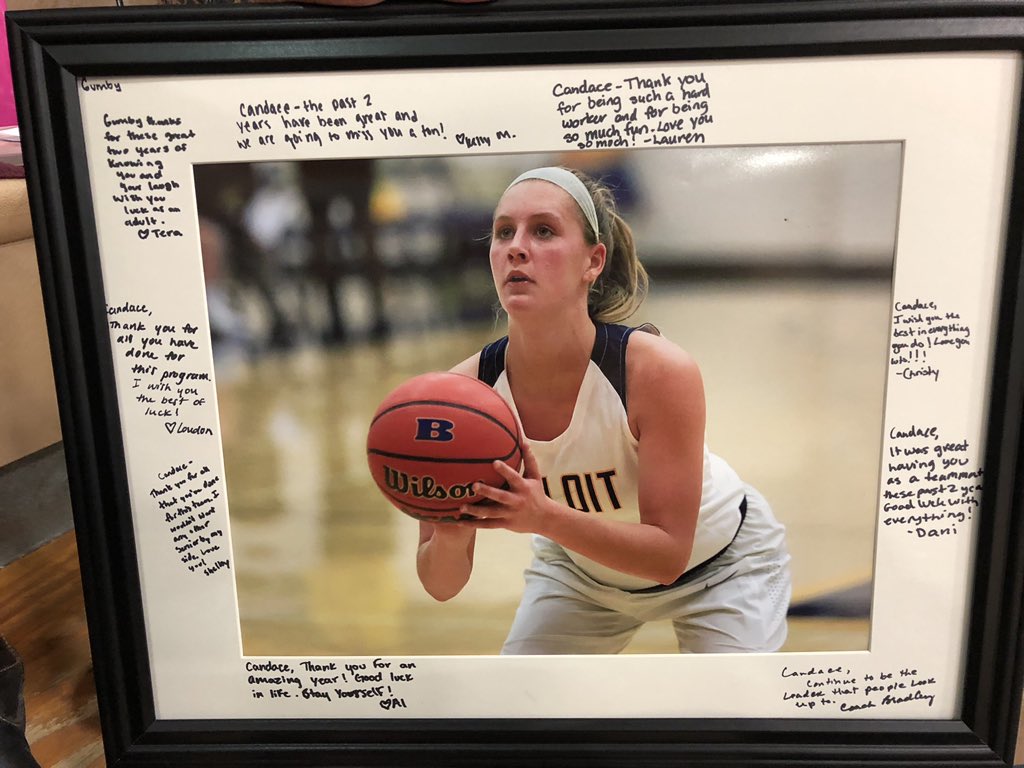 Gumby
Gumby thanks
for these great
two years of
knowing
you and
your laugh
wish you
luck as an
adult.
♡Tera
Candace - the past 2
years have been great and
we are going to miss you a ton! ♡Kelly M.
Candace - Thank you
for being such a hard
worker and for being
so much fun. Love you
so much! -Lauren
Candace,
Thank you for
all you have
done for
this program.
I wish you
the best of
luck!
♡Loudon
Candace,
I wish you the
best in everything
you do! Love you
lots!!!
-Christy
Candace,
It was great
having you
as a teammate
these past 2
Good luck with
everything!
-Dani
Candace-
Thank you for all
that you've done
for this team. I
wouldn't want
any other
senior by my
side. Love
you!
Shelby
B
Wilson
LOIT
Candace, Thank you for an
amazing year! Good luck
in life. Stay Yourself!
♡Al
Candace,
Continue to be the
Leader that people Look
up to. Coach Bradley